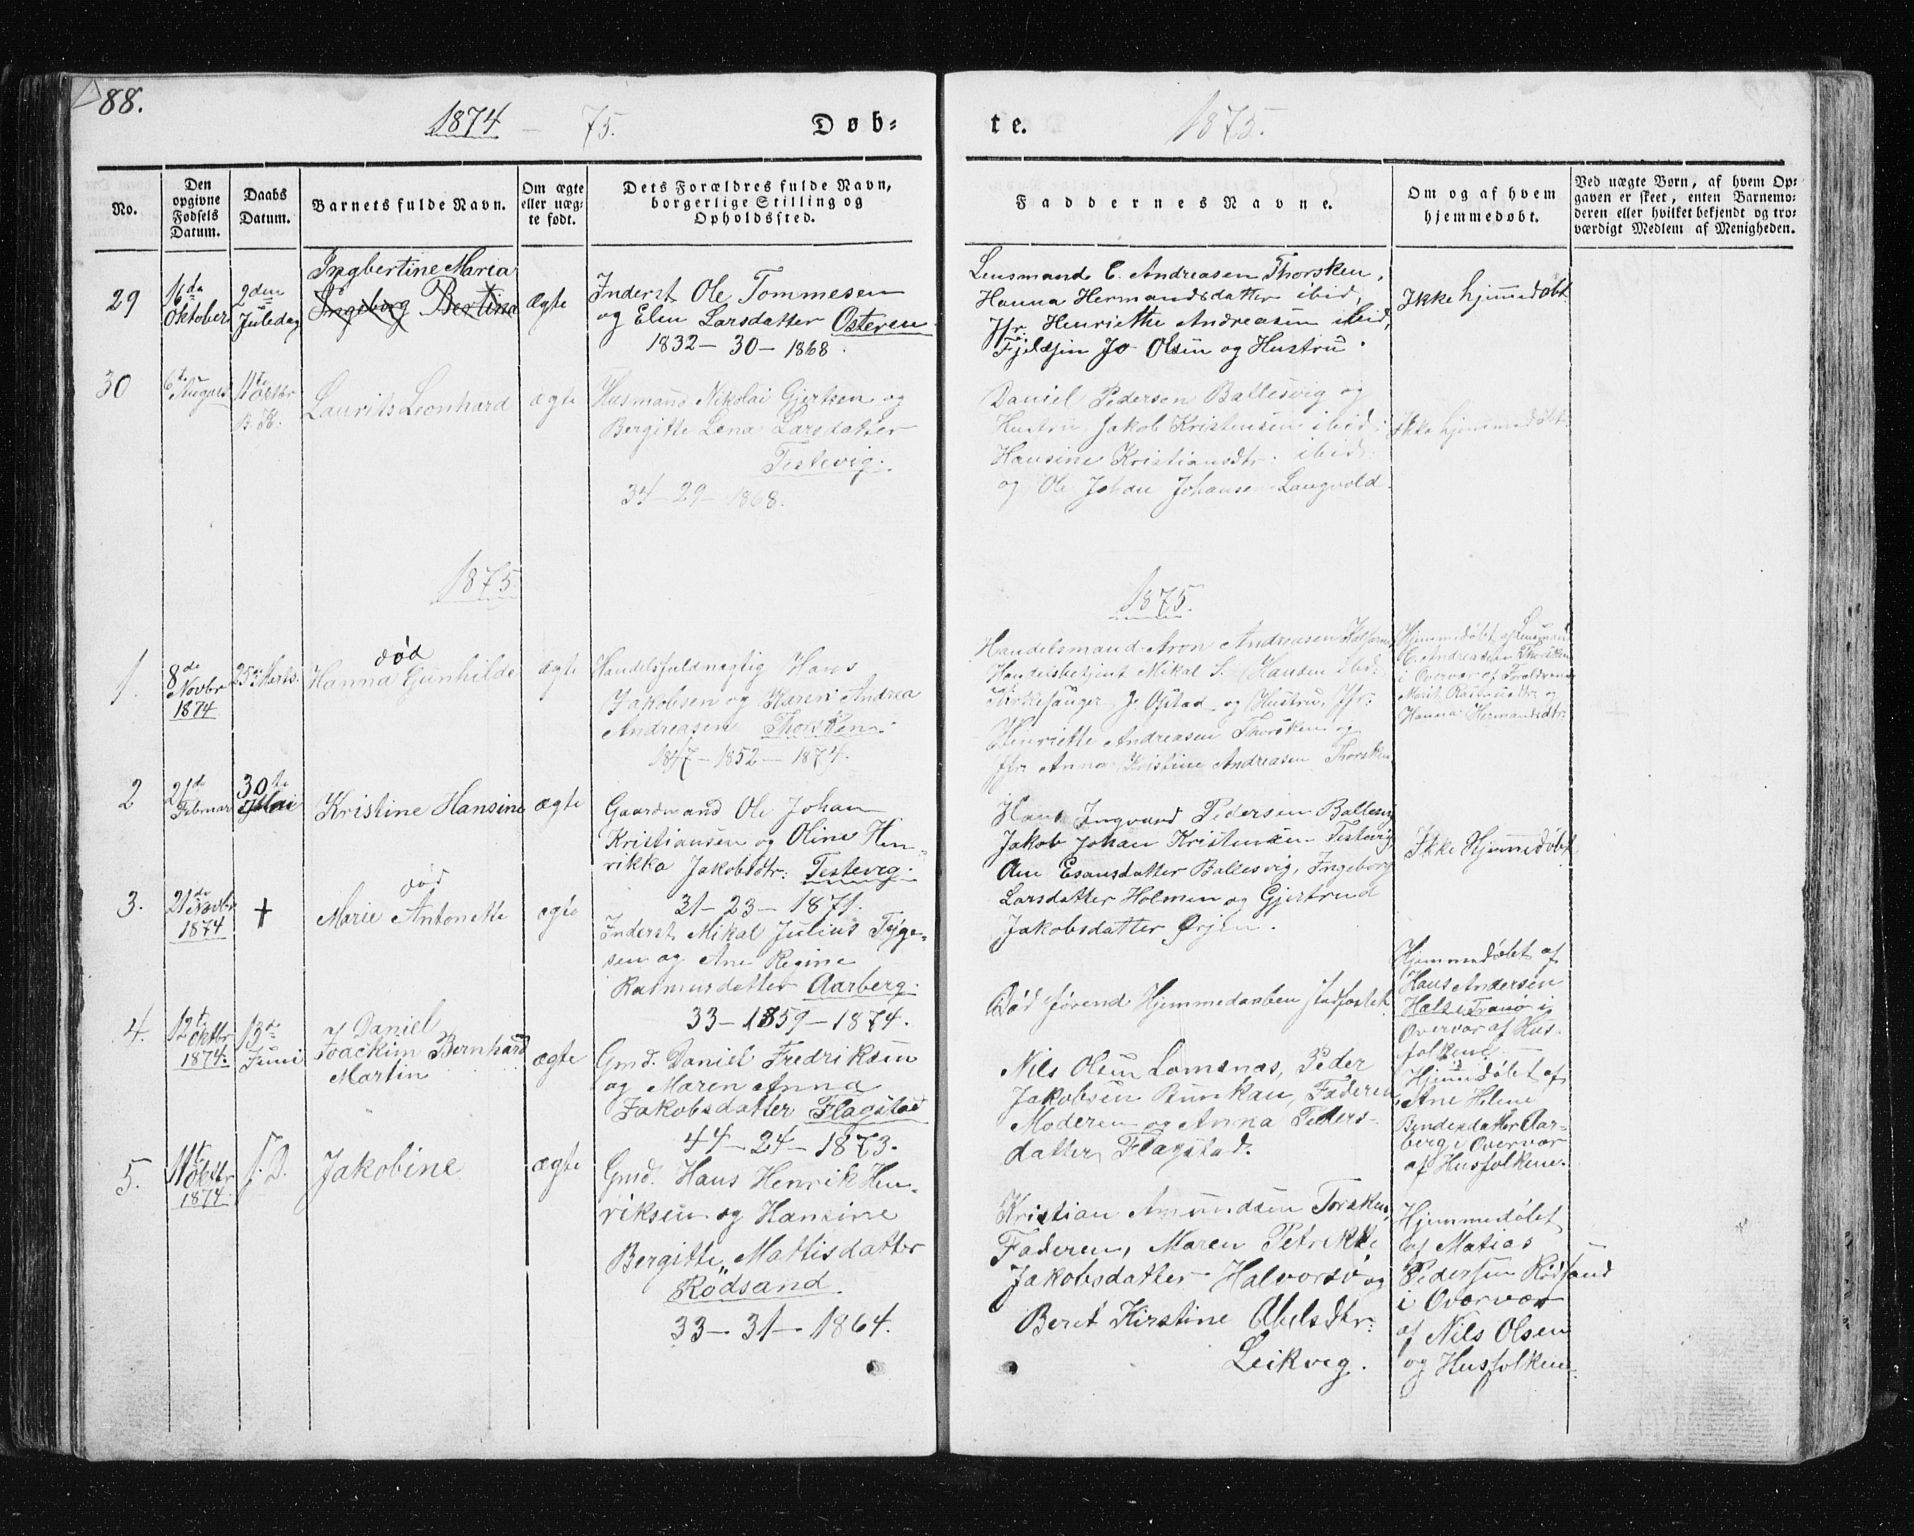 88.
1874 — 75.
Døb-
te.
1875.
No.
Den opgivne Fødsels Datum.
Daabs Datum.
Barnets fulde Navn.
Om ægte eller uægte født.
Dets Forældres fulde Navn, borgerlige Stilling og Opholdssted.
Faddernes Navne.
Om og af hvem hjemmedøbt.
Ved uægte Børn, af hvem Opgaven er skeet, enten Barnemoderen eller hvilket bekjendt og troværdigt Medlem af Menigheden.
29
16da Oktober
2den Juledag
Ingbertine Maria
Ingeborg Bertina
ægte
Inderst Ole Tommesen
og Elen Larsdatter Osteren
1832 — 30 — 1868.
Lensmand C. Andreasen Thorsken,
Hanna Hermandsdatter ibid,
Jfr. Henriethe Andreasen ibid,
Jo Olsen og Hustru.
Ikke hjemmedøbt
30
6te August
11te Oktbr
B. K.
Laurits Leonhard
ægte
Husmand Nikolai Gjertsen og
Bergitte Lena Larsdatter
Testevig.
34 — 29 — 1868.
Daniel Pedersen Ballesvig og
Hustru, Jakob Kristensen ibid:
Hansine Kristiansdtr: ibid:
og Ole Johan Johansen Langvold.
Ikke hjemmedøbt
1875.
1875.
1.
8de Novbr 1874
25de Marts.
død
Hanna Gunhilde
ægte
Handelsfuldmægtig Hans
Jakobsen og Karen Andrea
Andreasen Thorsken.
1847 — 1852 — 1874.
Handelsmand Aron Andreasen
Handelsbetjent Mikal S. Hansen ibid:
Kirkesanger J. Opstad og Hustru, Jfr:
Henriette Andreasen Thorsken og
Jfr: Anna Kristine Andreasen Thorsken
Hjemmedøbt af Lensmand
C. Andreasen Thorsken
i Overvær af Forældrene
Marit Rasmusdtr og
Hanna Hermandsdtr.
2
21de Februar
30te Mai
Kristine Hansine
ægte
Gaardmand Ole Johan
Kristiansen og Oline Hen-
rikka Jakobsdtr: Testevig.
31 — 23 — 1871.
Hans Ingvard Pedersen Ballesvig
Jakob Johan Kristensen Testevig,
Ane Esansdatter Ballesvig, Ingeborg
Larsdatter Holmen og Gjertrud
Jakobsdatter Ørjen.
Ikke Hjemmedøbt
3.
21de Novbr 1874
+
død
Marie Antonette
ægte
Inderst Mikal Julius Tyge-
sen og Ane Regine
Rasmusdatter Aarberg.
33 — 1859 — 1874.
Død førend Hjemmedaaben stadfæstet.
Hjemmedøbt af
Hans Andersen
i
Overvær af Hus-
folkene.
4.
12te Oktbr 1874.
13de Juni
af Daniel
Joackim Bernhard
Martin
ægte
Gmd. Daniel Fredriksen
og Maren Anna
Jakobsdatter Flagstad
44 — 24 — 1873.
Nils Olsen Lomsnæs, Peder
Jakobsen Bunkan, Faderen
Moderen og Anna Peders-
datter Flagstad.
Hjemdøbt af
Ane Helene
Bendesdatter Aar-
berg i Overvær
af Husfolkene.
5.
11te Oktbr 1874.
s. D.
Jakobine
ægte
Gmd. Hans Henrik Hen-
riksen og Hansine
Bergitte Mattisdatter
Rødsand
33 — 31 — 1864.
Kristian Amundsen Torsken,
Faderen, Maren Petrikke
Jakobsdatter Halvorsø og
Beret Kirstine Abelsdtr:
Leikvig.
Hjemmedøbt
af Matias
Pedersen Rødsand
i Overvær
af Nils Olsen
og Husfolkene.